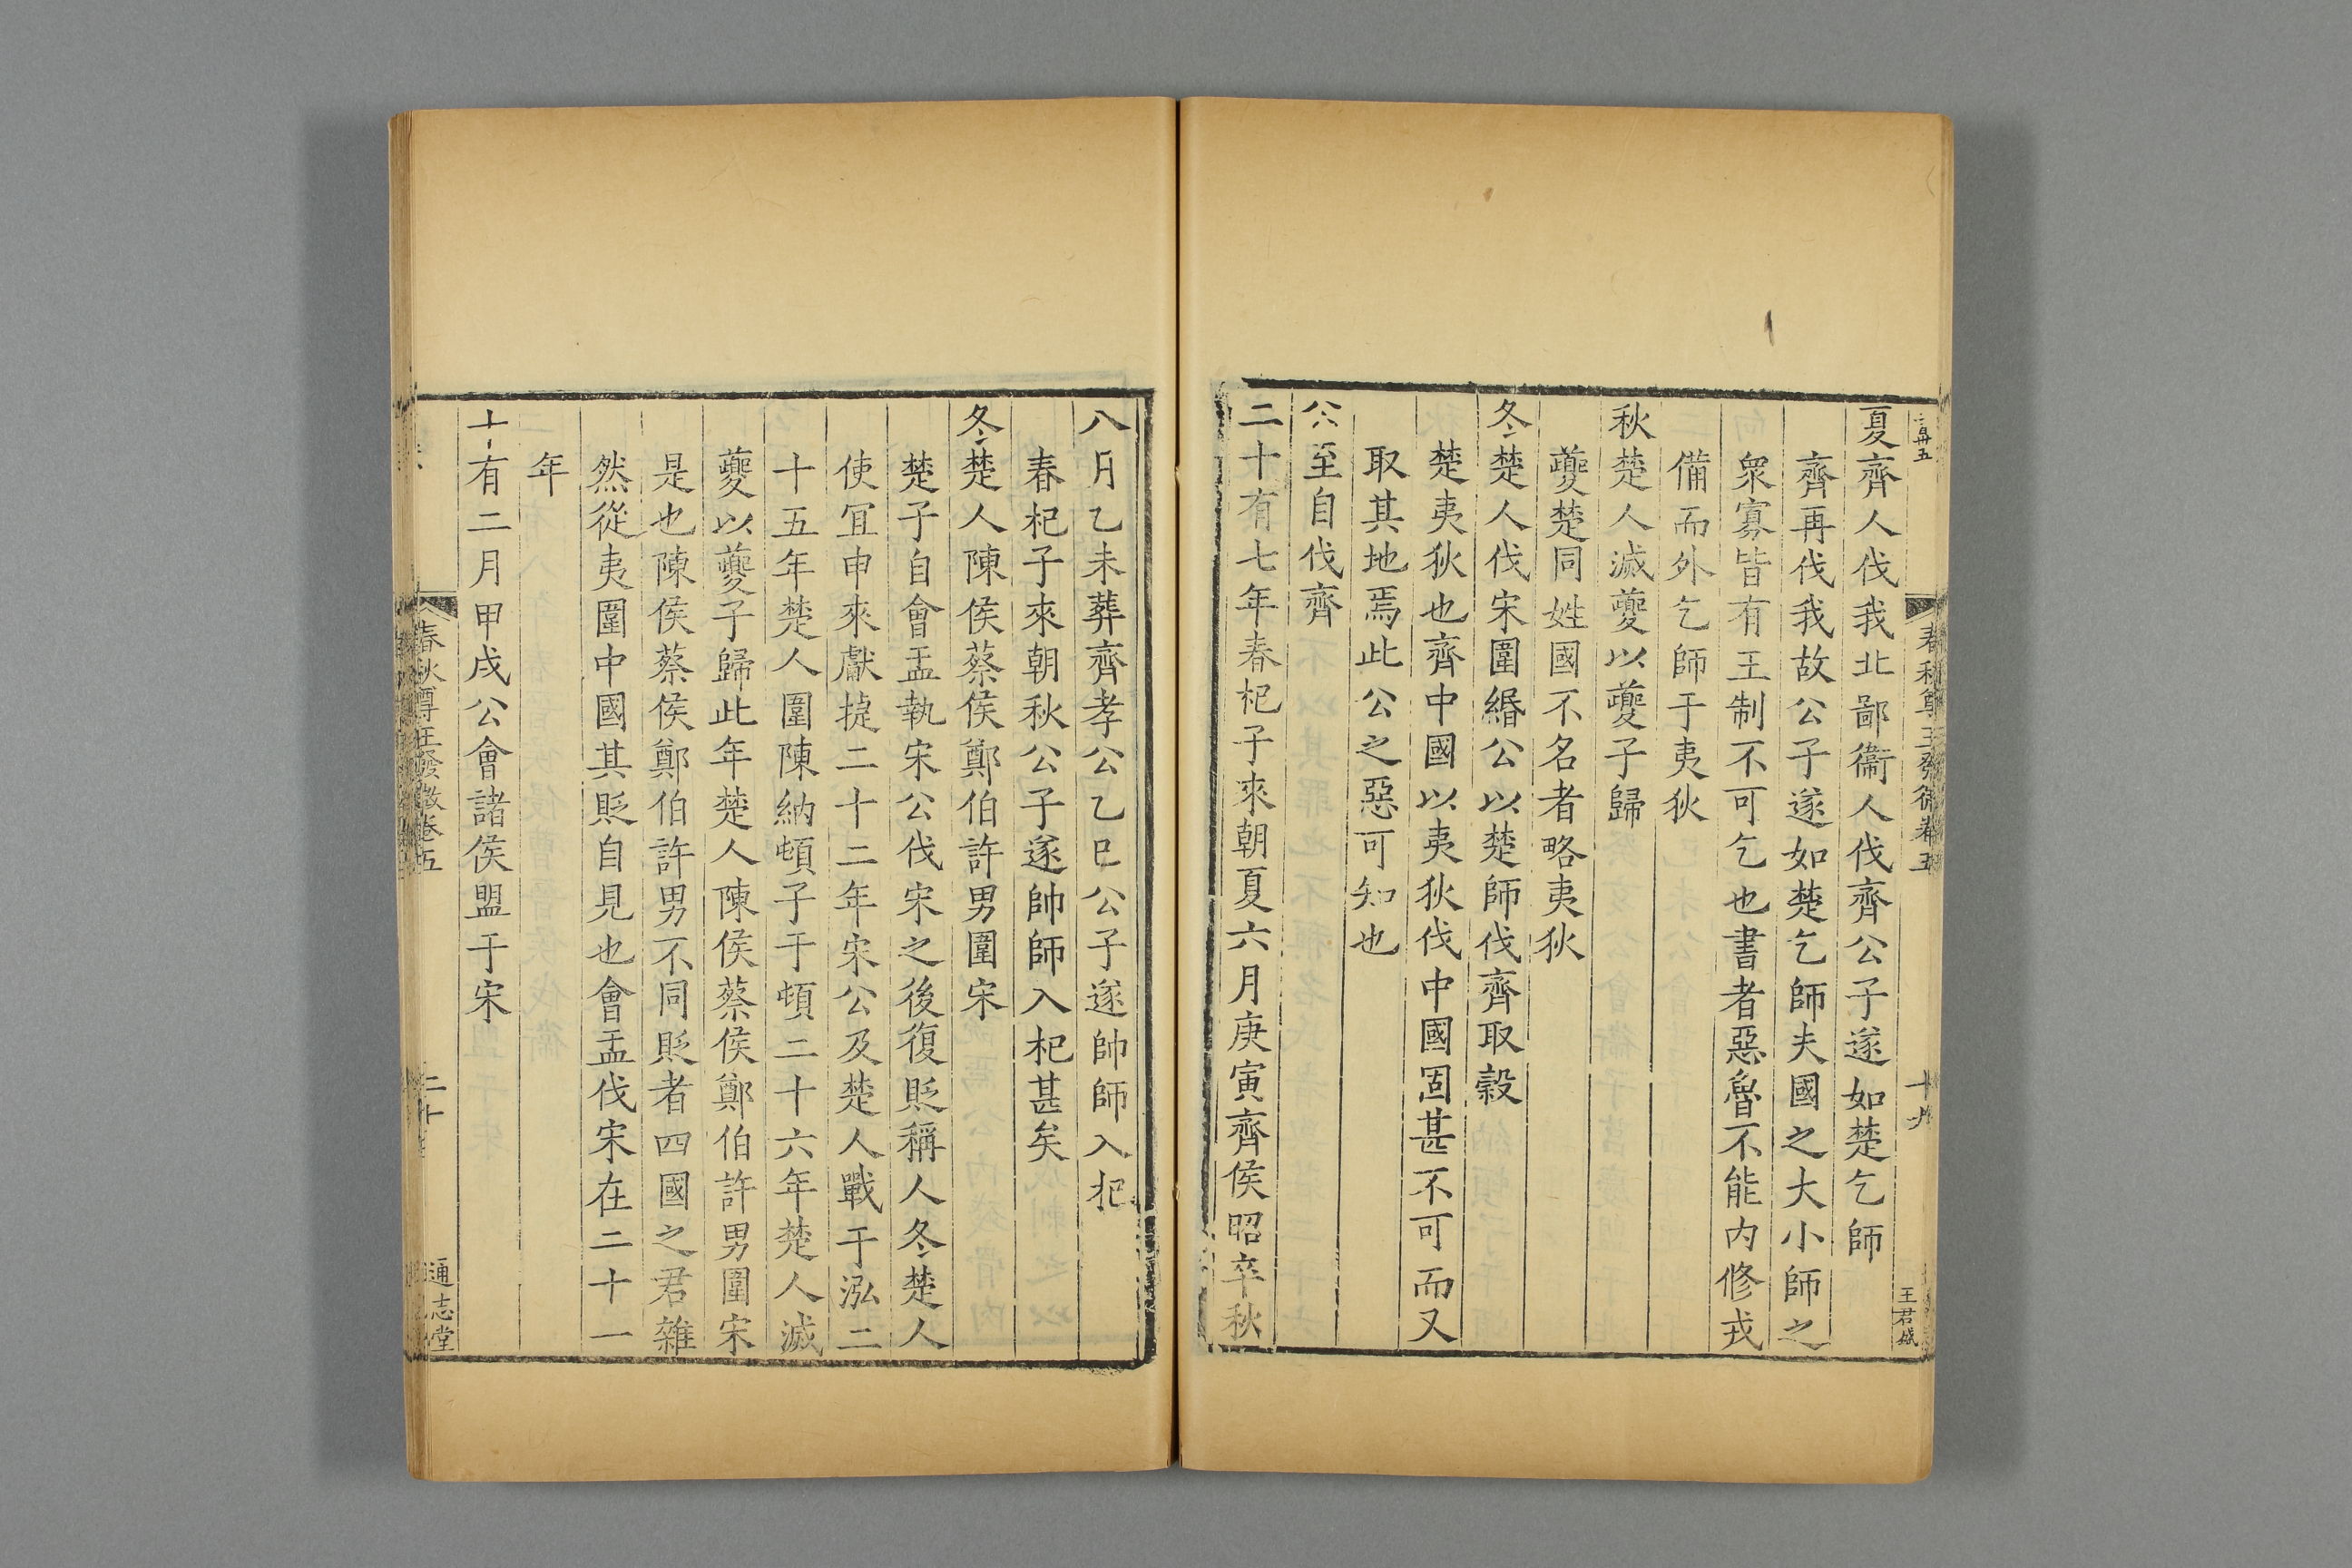 夏齊人伐我北鄙衞人伐齊公子遂如楚乞師
齊再伐我故公子遂如楚乞師夫國之大小師之
衆寡皆有王制不可乞也書者惡魯不能内修戎
備而外乞師于夷狄
秋楚人滅夔以夔子歸
夔楚同姓國不名者略夷狄
冬楚人伐宋圍緡公以楚師伐齊取穀
楚夷狄也齊中國以夷狄伐中國固甚不可而又
取其地焉此公之惡可知也
公至自伐齊
二十有七年春杞子來朝夏六月庚寅齊侯昭卒秋
八月乙未葬齊孝公乙巳公子遂帥師入杞
春杞子來朝秋公子遂帥師入杞甚矣
冬楚人陳侯蔡侯鄭伯許男圍宋
楚子自會盂執宋公伐宋之後復貶稱人冬楚人
使宜申來獻捷二十二年宋公及楚人戰于泓二
十五年楚人圍陳納頓子于頓二十六年楚人滅
夔以夔子歸此年楚人陳侯蔡侯鄭伯許男圍宋
是也陳侯蔡侯鄭伯許男不同貶者四國之君雜
然從夷圍中國其貶自見也會盂伐宋在二十一
年
十有二月甲戌公會諸侯盟于宋
春秋尊王發微卷五
二十
通志堂